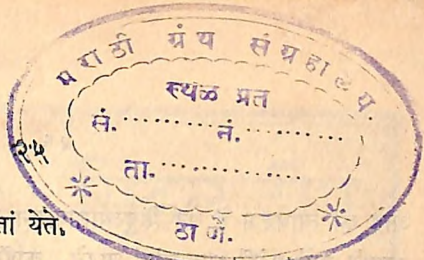 मराठी ग्रंथ संग्रहालय.
स्थळ प्रत
सं. ............ नं. ............
ता. ............
ठाणें.
तां येते.